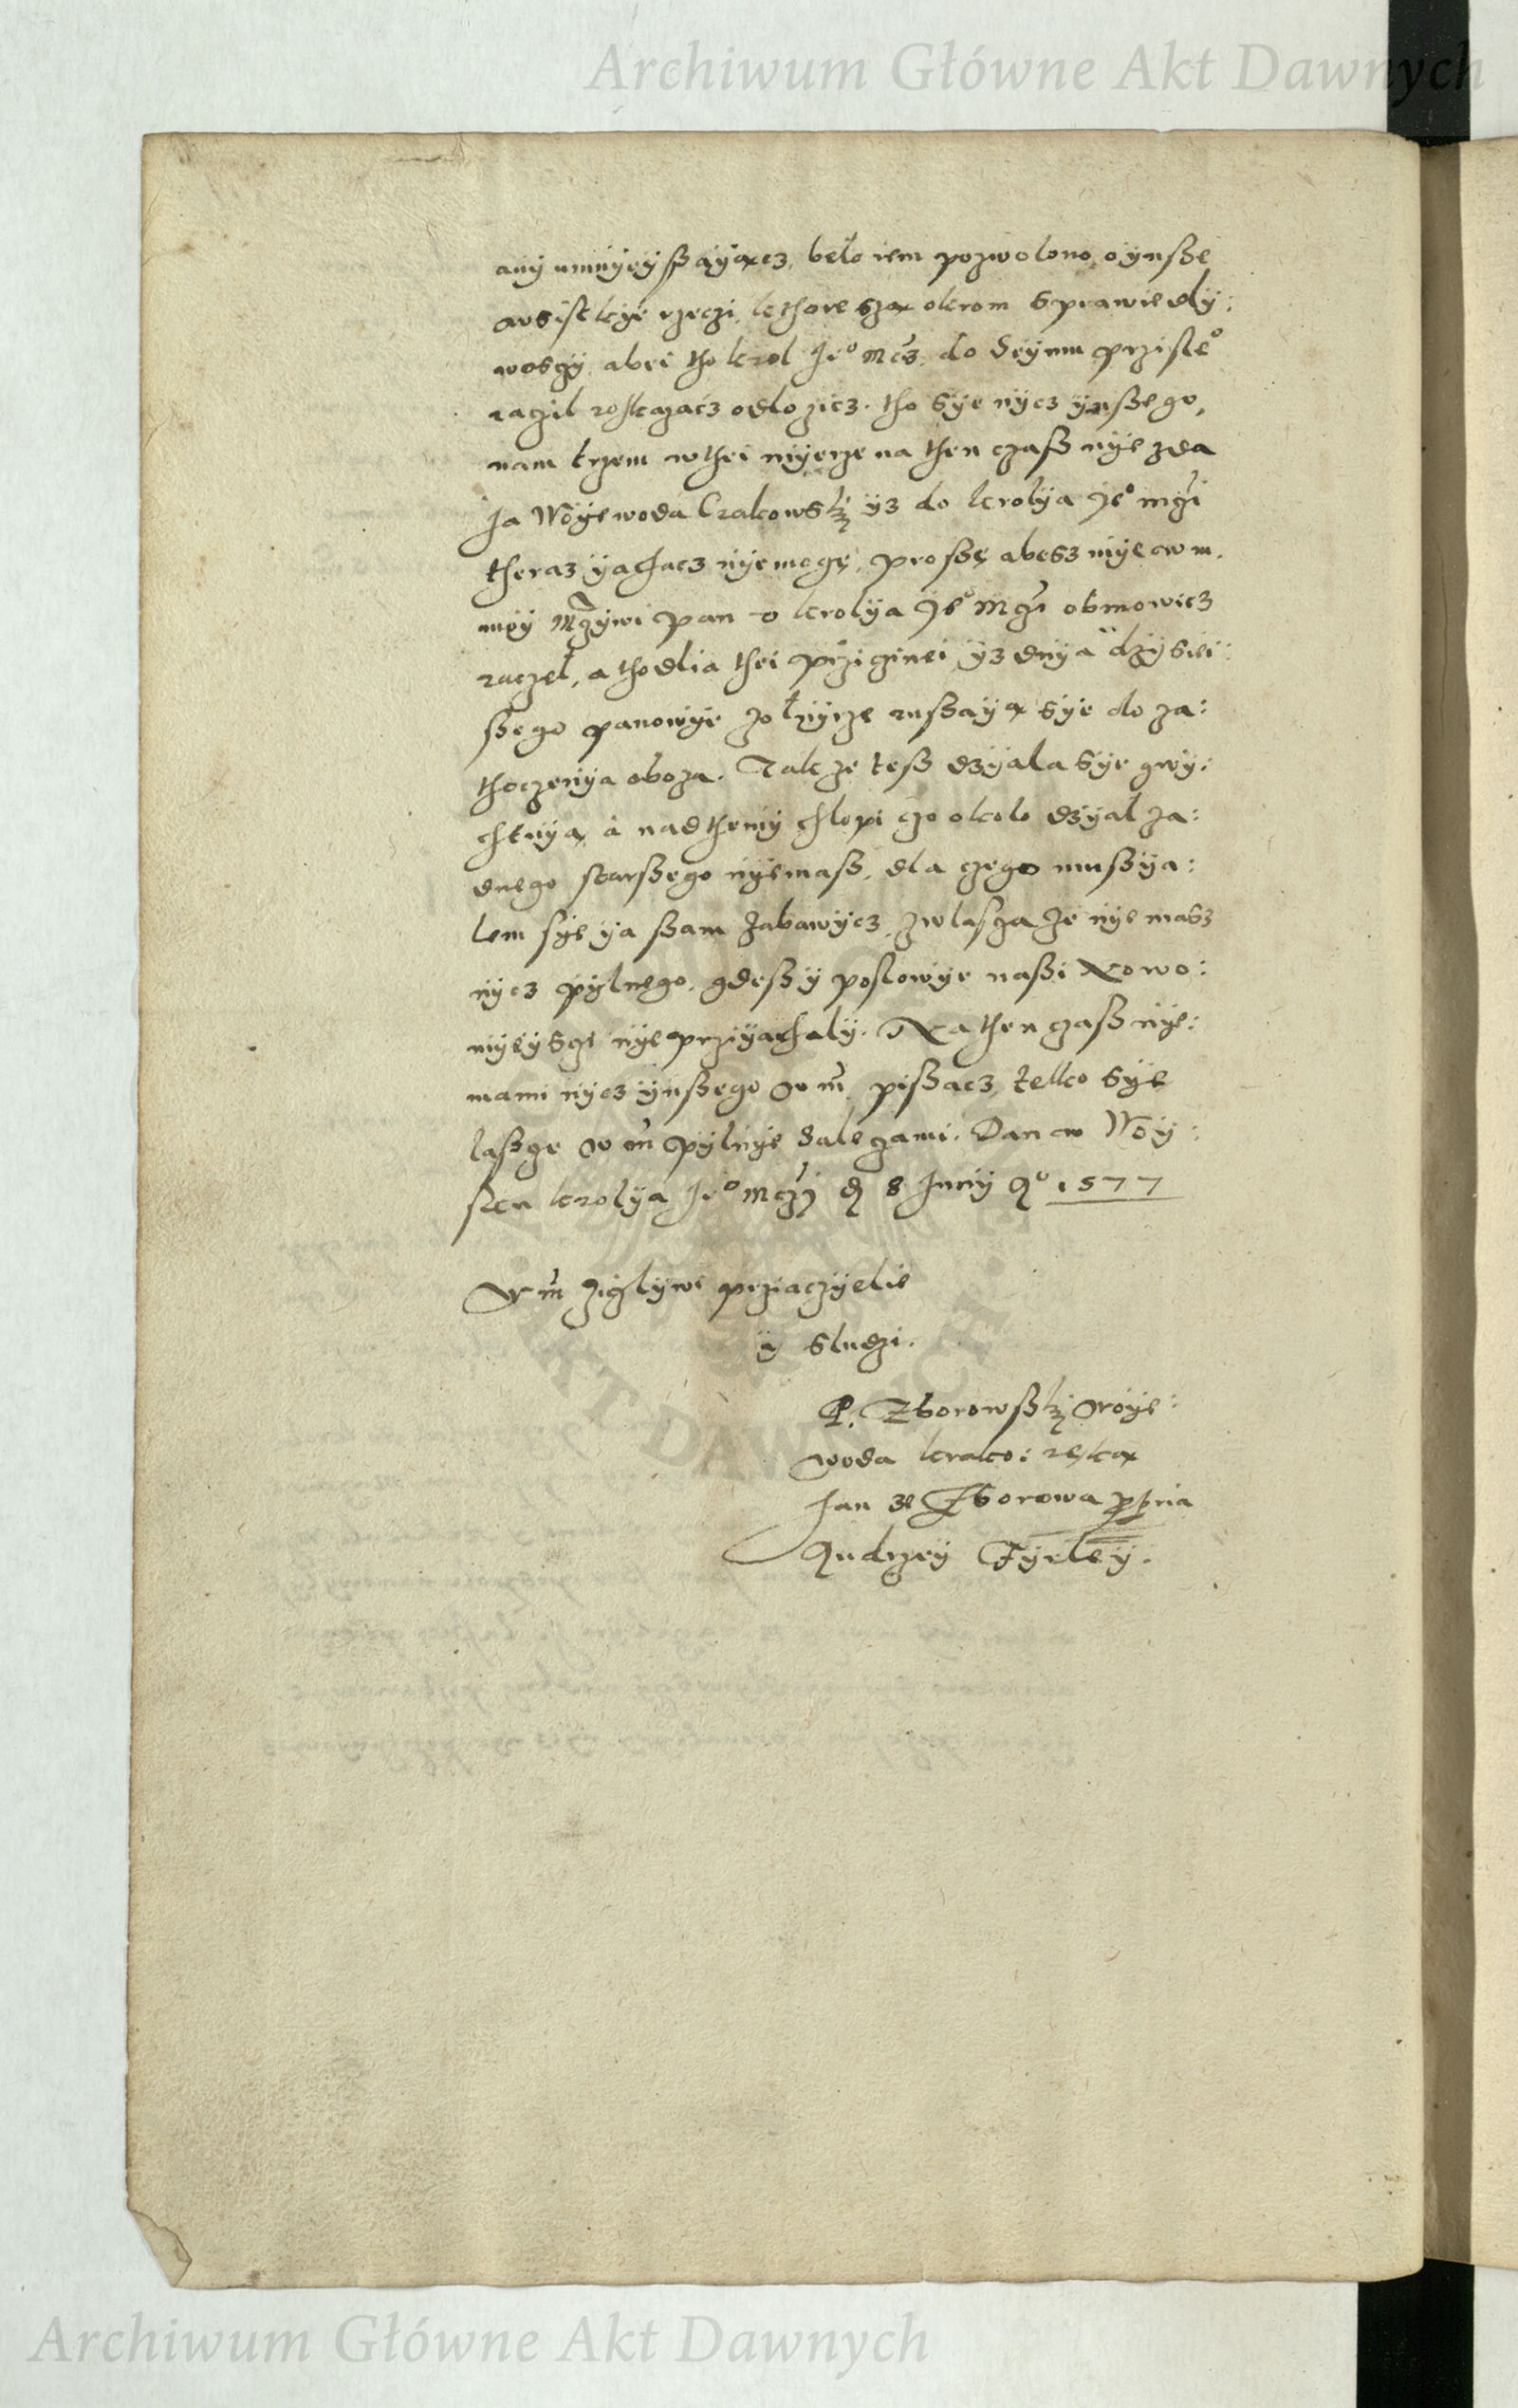 Archiwum Główne Akt Dawnych
any umnyeyßayącz, beło iem pozwolono, o ynsße
wsistkye rzeczi, kthore szą okrom sprawiedly:
wosczy, abei tho krol Jeº Mcz do Seymu przisłeº
raczil roskazacz odlozicz. tho sye nycz ynßego,
nam trzem w thei myerze na then czasß nye zda
Ja Woyewoda Crakowskj yz do krolya Jeº Mczi
theraz yachacz nyemogę, proßę abesz mye w m.
moy Mczywi pan v krolya Jeº Mczi obmowicz
raczeł, a tho dlia thei prziczinei yz dnya dzysiei:
ßego panowye żołnyrze rußayą sye do za:
thoczenya oboza. Takze teß dzyala sye gwy:
chtuyą, a nad themy chlopi czo okolo dzyal za:
dnego starßego nyemaß, dla czego mußya:
lem sye ya ßam zabawycz, zwlascza ze nye masz
nycz pylnego, gdeßy poslowye naßi Nowo:
myeysczi nye prziyachaly. Na then czaß nye:
mami nycz ynßego w m̃ pißacz, telko sye
laßcze w m̃ pylnye Salegami. Dan w Woy:
sku krolya Jeº Mczj d 8 Juny Aº 1577
W m̃ zicżlywi prziaczyelie
y sludzi.
P. Zborowßkj Woye:
woda krako: ręką
Jan ze Zborowa ppria
Andrzey Fyrley.
Archiwum Główne Akt Dawnych